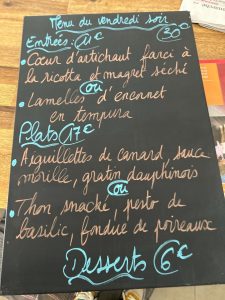 Menu du vendredi soir
Entrées: 11€ 30€
• Cœur d'artichaut farci à
la ricotta et magret séché
ou
• Lamelles d'encornet
en tempura
Plats 17€
• Aiguillettes de canard, sauce
morille, gratin dauphinois
ou
• Thon snaché, pesto de
basilic, fondue de poireaux
Desserts 6€